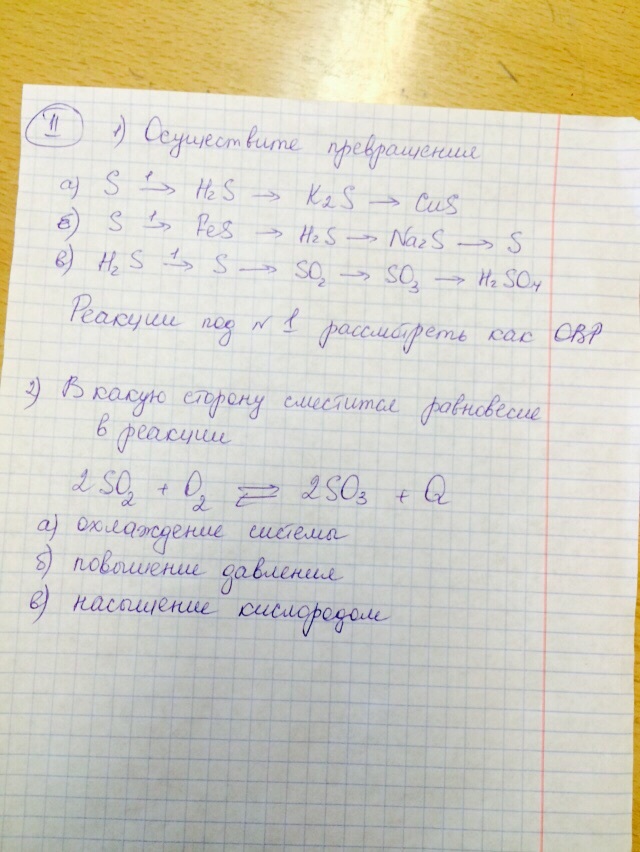 II 1) Осуществите превращения
а) S 1→ H₂S → K₂S → CuS
б) S 1→ FeS → H₂S → Na₂S → S
в) H₂S 1→ S → SO₂ → SO₃ → H₂SO₄
Реакции под № 1 рассмотреть как ОВР
2) В какую сторону сместится равновесие
в реакции
2SO₂ + O₂ ⇄ 2SO₃ + Q
а) охлаждение системы
б) повышение давления
в) насыщение кислородом